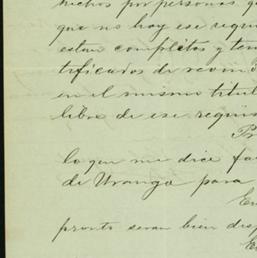 hechos por personas q
que no hay ese requi
estan completos y ten
tificados de recono
en el mismo titul
libra de ese requis
Pr
lo que me dice fa
de Uranga para
En
pronto seran bien desp
E